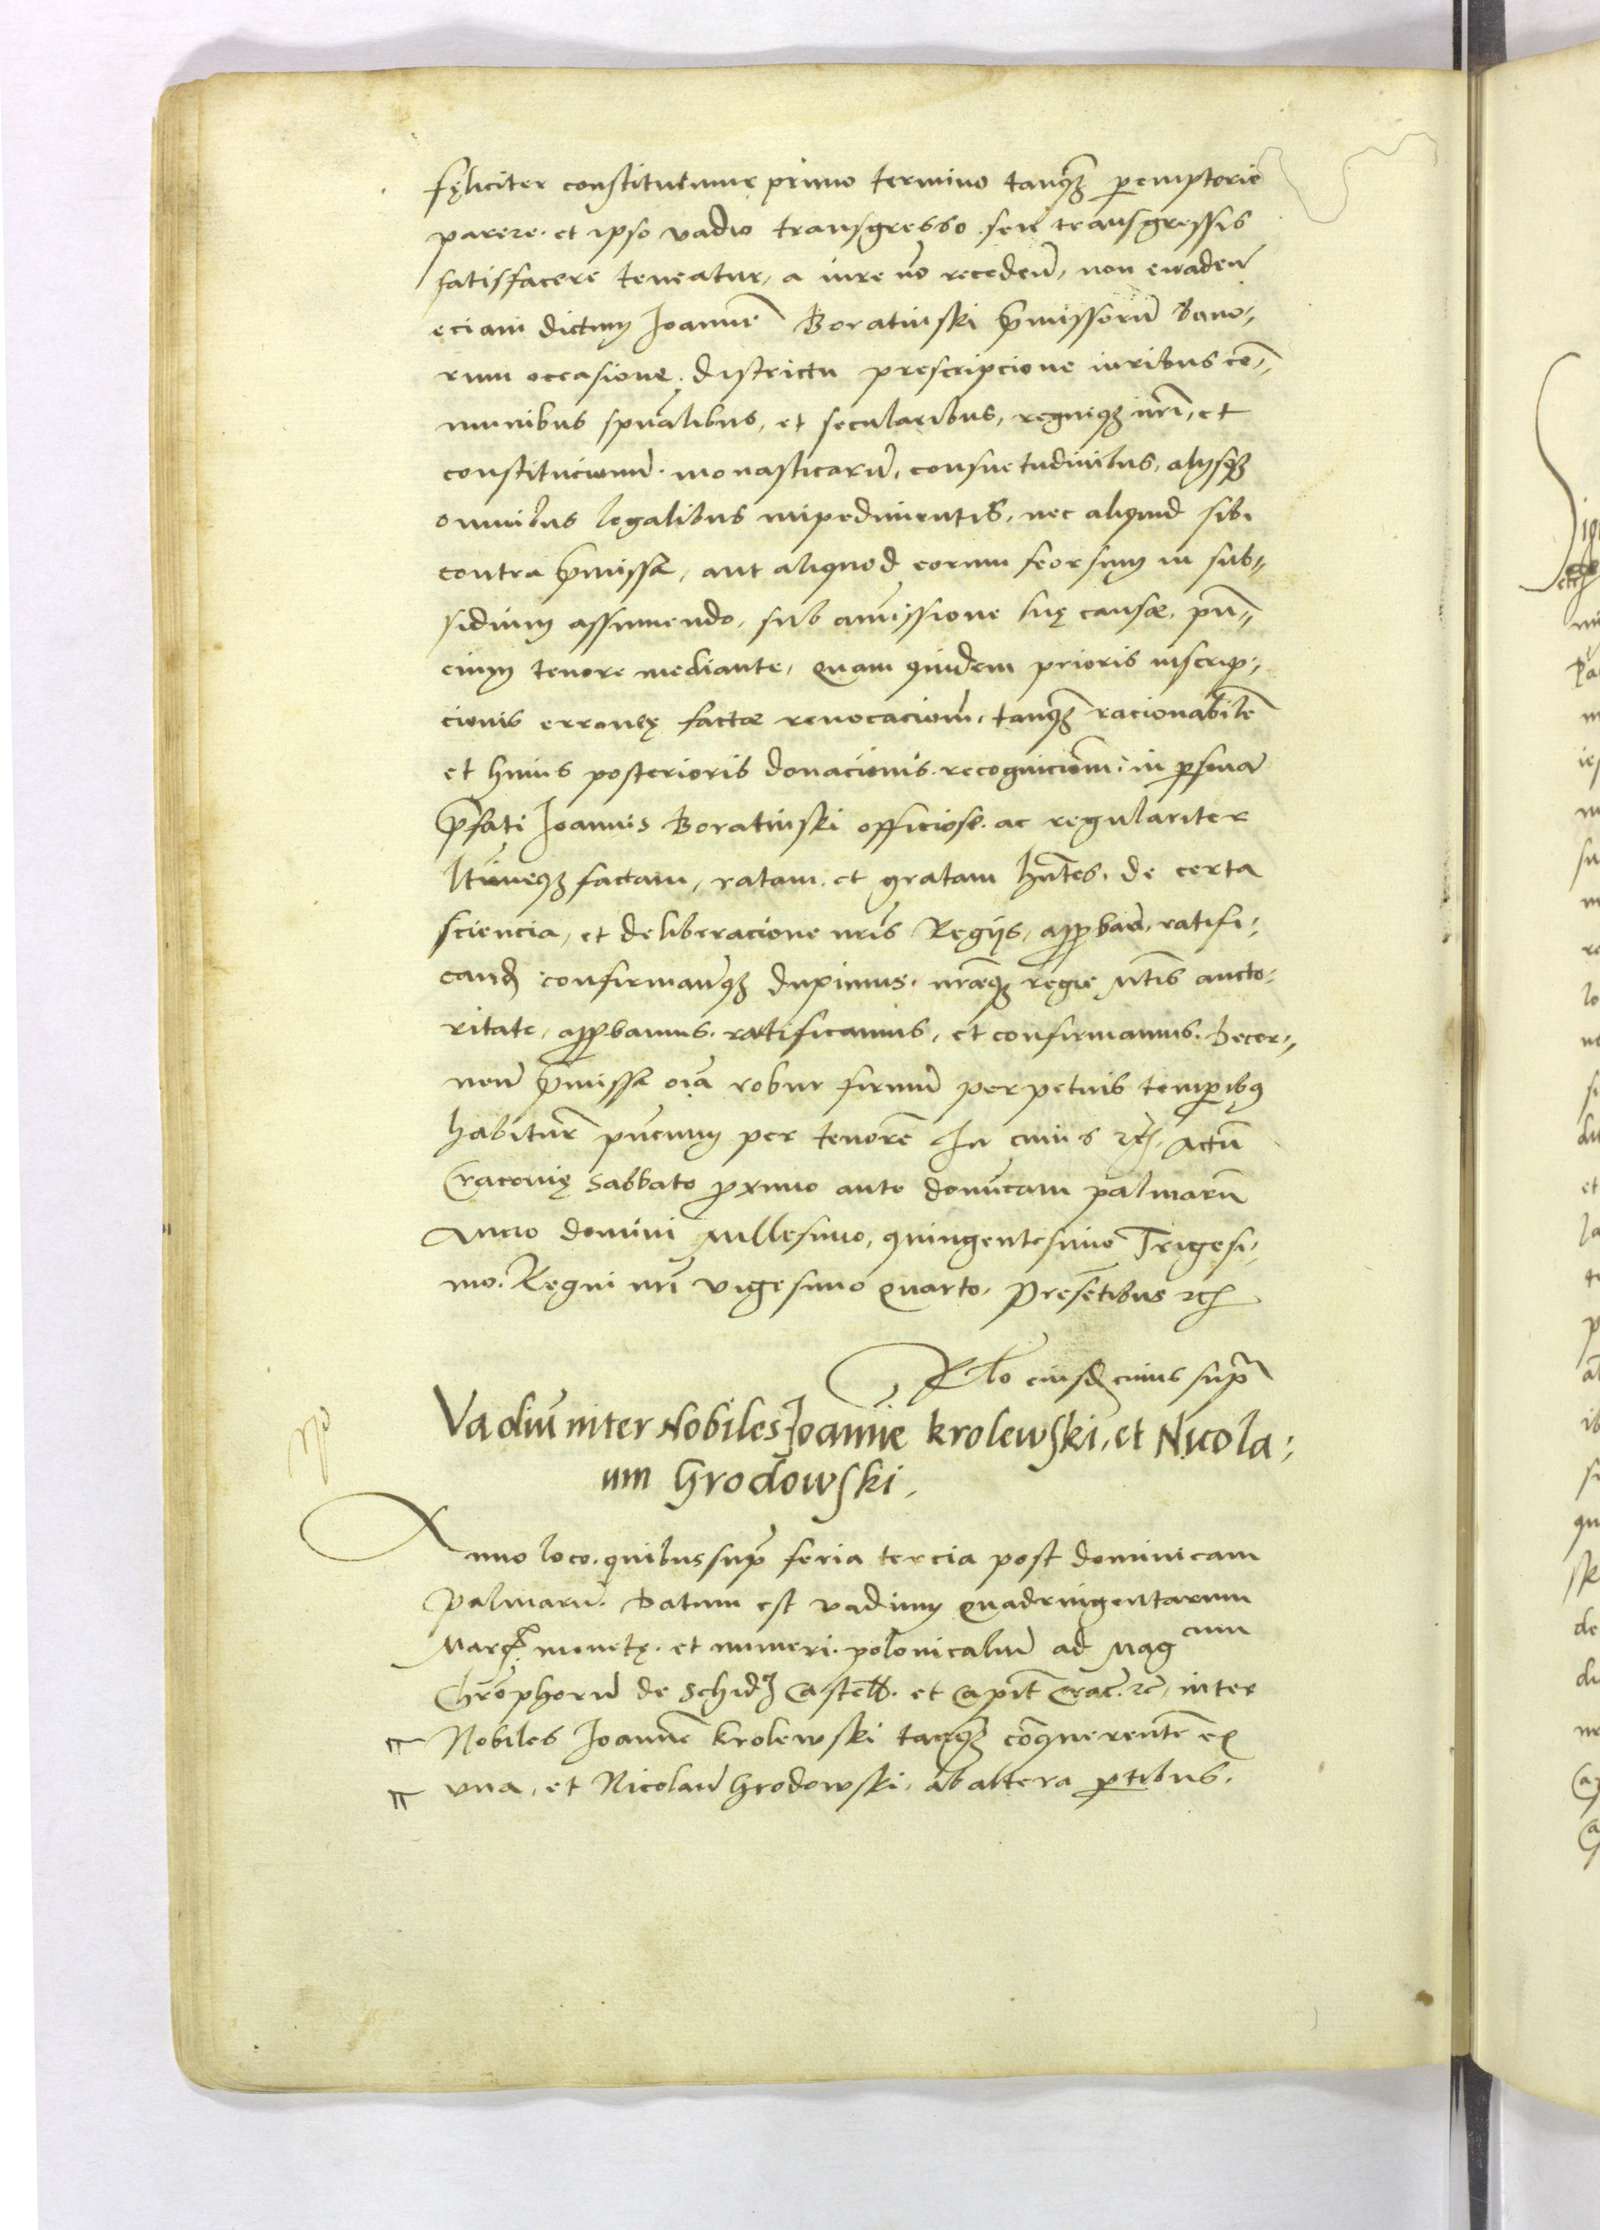 fęliciter constitutum primo termino tanq̃ʒ peremptorie
parere. et ipso vadio transgresso seu transgressis
satisfacere teneatur, a iure ño recedeñ, non evadeñ
eciam dictum Ioannẽ Boratinski p̃missorũ bono/
rum occasione. districtu prescripcione iuribus cõ/
munibus spũalibus, et secularibus, regniqʒ nr̃i, et
constitucionũ. monasticarũ, consuetudinibus, alysqʒ
omnibus legalibus impedimentis, nec aliquid sibi
contra p̃missa, aut aliquod eorum seorsum in sub/
sidium assumendo, sub amissione suę causæ, pñ/
cium tenore mediante, Quam quidem prioris inscrip/
cionis erroneę factæ revocacioñ, tanq̃ʒ racionabilẽ
et huius posterioris donacionis. recognicioñ. in psona
p̃fati Ioannis Boratinski officiose. ac regulariter
ltimeqʒ factam, ratam. et gratam hñtes, de certa
sciencia, et deliberacione nr̃is Regijs, approband, ratifi/
cand confirmanqʒ duximus. nr̃aqʒ regie Mtis aucto/
ritate, approbamus. ratificamus, et confirmamus. Decer/
neñ p̃missa oĩa robur firmũ perpetuis temporibus
habitur̃ pñcium per tenorẽ In cuius rc̃. Actũ
Cracovię Sabbato proximo ante donĩcam palmarũ
Anno domini Millesimo, quingentesimo Trigesi/
mo. Regni nr̃i vigesimo Quarto, Presẽtibus rc̃
Rlo eiusd cuius supra
Vadiũ inter Nobiles Joannẽ Krolewski, et Nicola/
um Grodowski.
Anno loco. quibus supra feria tercia post dominicam
Palmarũ. Datum est vadium Quadringentarum
Marcar̃ monetę. et numeri. polonicaliũ ad Magcum
Chrõphorũ de Schidl Castell. et Capit̃ Crac̃. rc̃, inter
Nobiles Joannẽ Krolewski tanq̃ʒ cõquerentẽ ex
vna, et Nicolaũ Grodowski, ab altera ptibus.